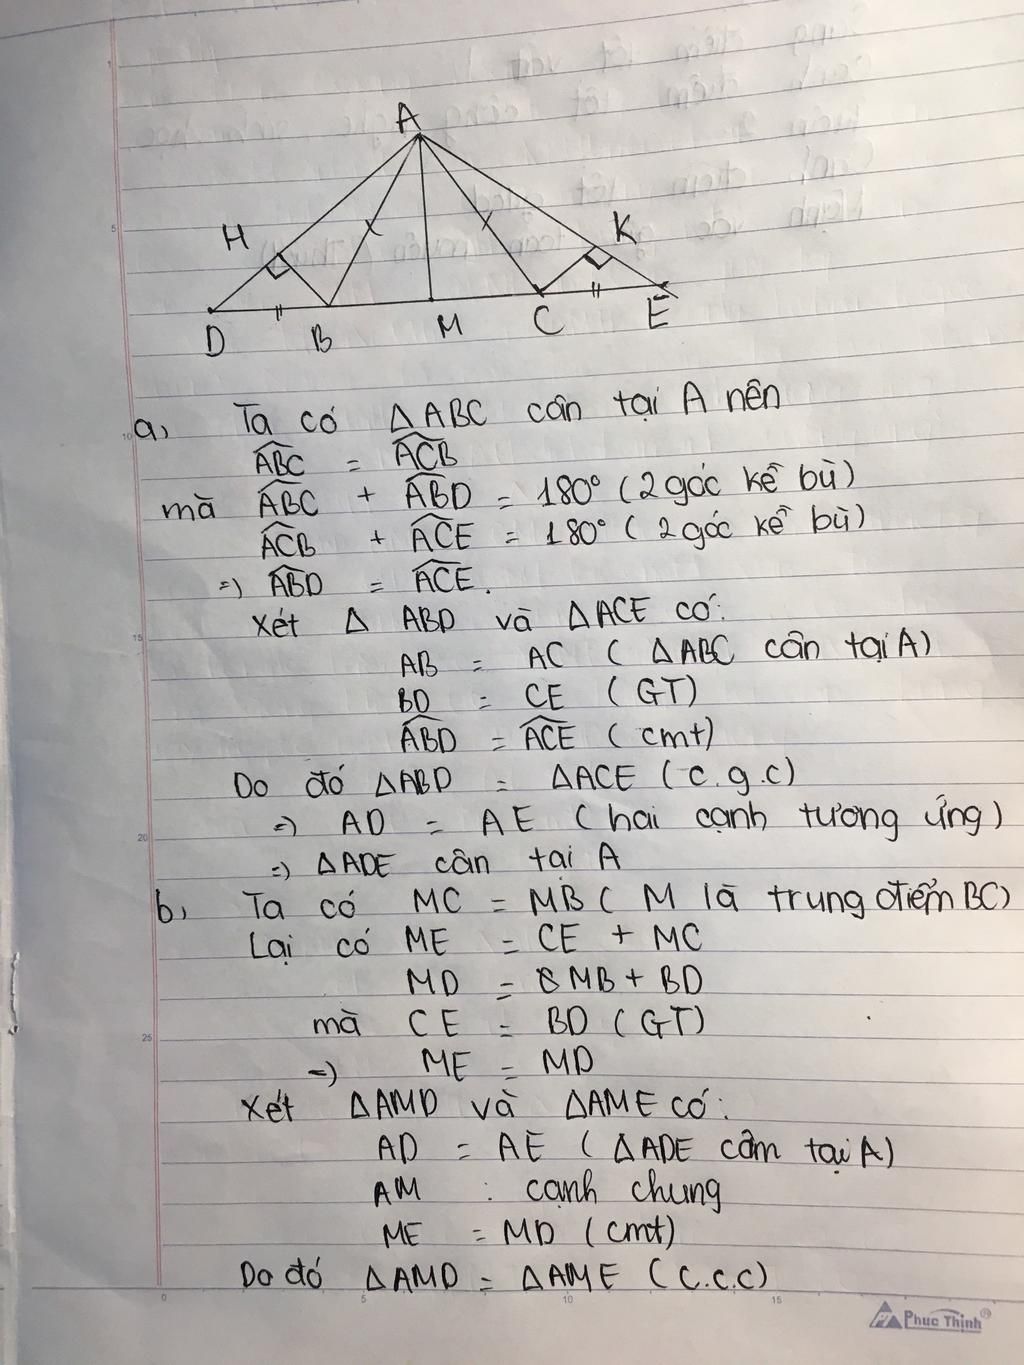 A
H
K
D
B
M
C
E
a, Ta có △ABC cân tại A nên
ABC = ACB
mà ABC + ABD = 180° (2 góc kề bù)
ACB + ACE = 180° (2 góc kề bù)
=> ABD = ACE.
Xét △ ABD và △ACE có:
AB = AC (△ABC cân tại A)
BD = CE (GT)
ABD = ACE (cmt)
Do đó △ABD = △ACE (c.g.c)
=> AD = AE (hai cạnh tương ứng)
=> △ADE cân tại A
b, Ta có MC = MB (M là trung điểm BC)
Lại có ME = CE + MC
MD = MB + BD
mà CE = BD (GT)
=> ME = MD
Xét △AMD và △AME có:
AD = AE (△ADE cân tại A)
AM : cạnh chung
ME = MD (cmt)
Do đó △AMD = △AME (c.c.c)
5
10
15
20
25
0 5 10 15
Phuc Thinh®